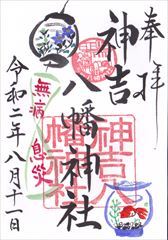 奉拝
神吉
八幡神社
無病息災
令和二年八月十一日
神吉八
幡神社